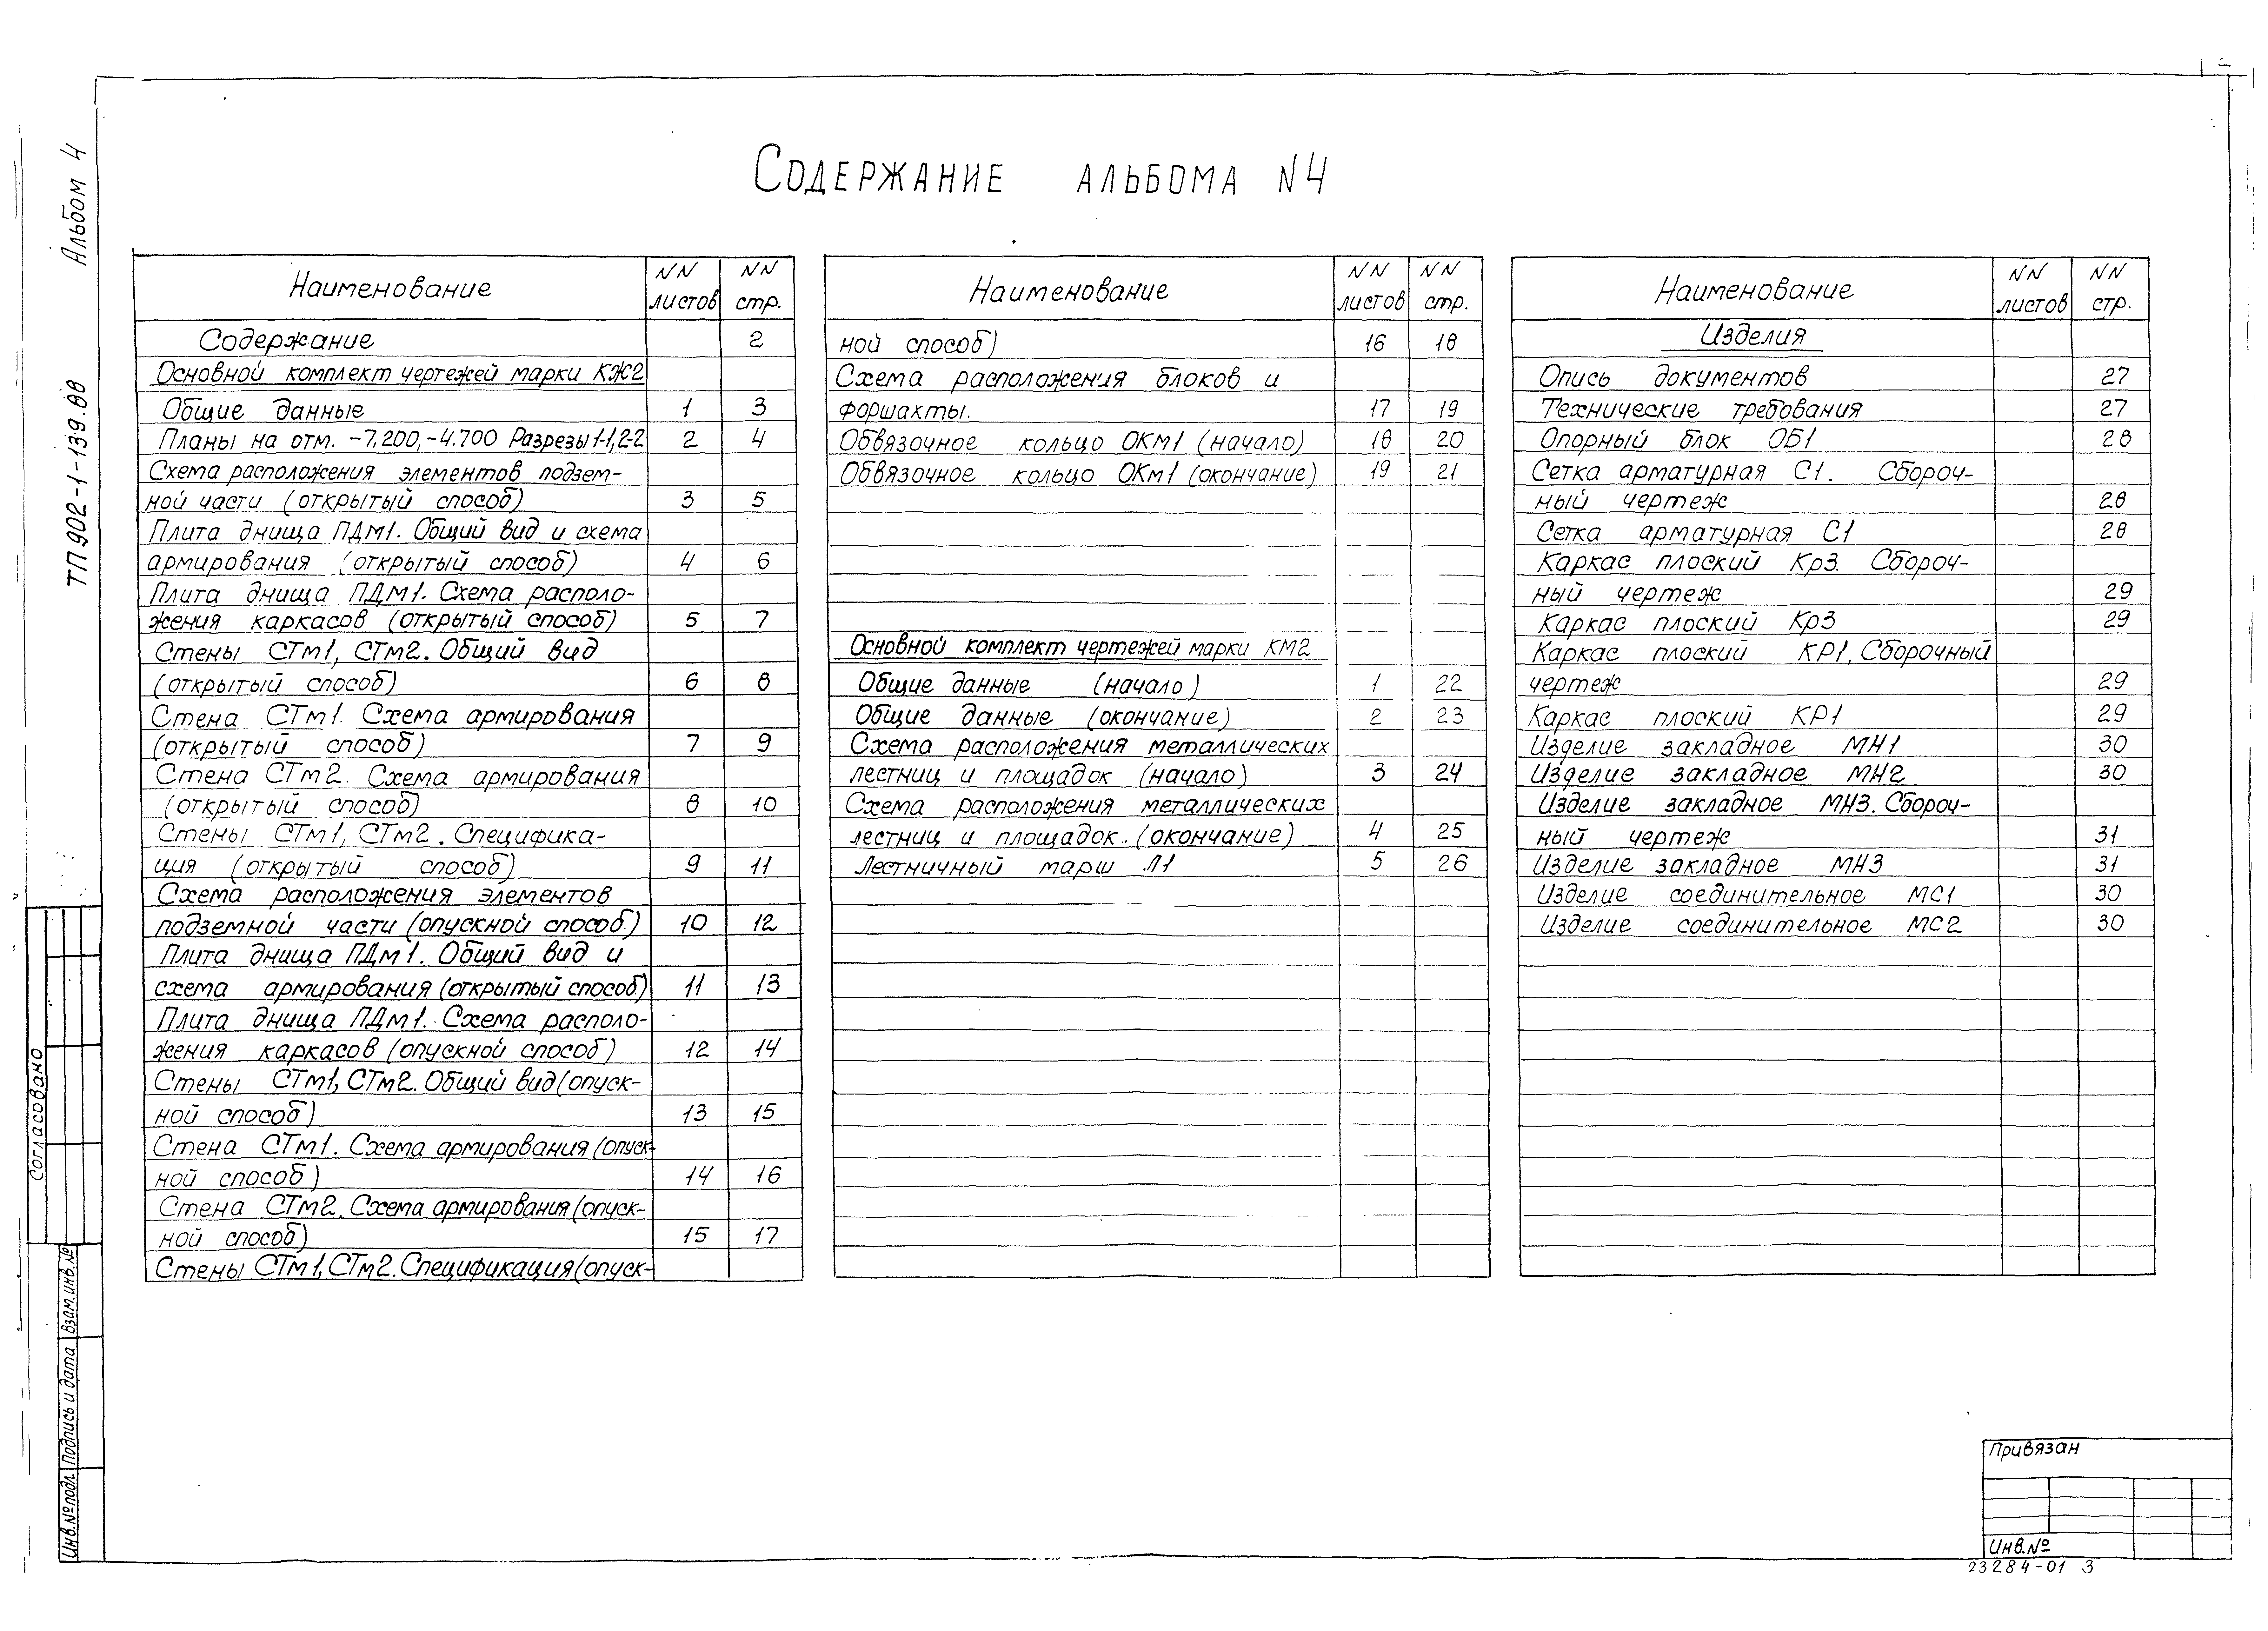 Содержание альбома N4
Альбом 4
ТП 902-1-139.88
Наименование NN листов NN стр.
Содержание 2
Основной комплект чертежей марки КЖ2
Общие данные 1 3
Планы на отм. -7.200,-4.700 Разрезы 1-1,2-2 2 4
Схема расположения элементов подзем-
ной части (открытый способ) 3 5
Плита днища ПДм1. Общий вид и схема
армирования (открытый способ) 4 6
Плита днища ПДм1. Схема располо-
жения каркасов (открытый способ) 5 7
Стены СТм1, СТм2. Общий вид
(открытый способ) 6 8
Стена СТм1. Схема армирования
(открытый способ) 7 9
Стена СТм2. Схема армирования
(открытый способ) 8 10
Стены СТм1, СТм2. Специфика-
ция (открытый способ) 9 11
Схема расположения элементов
подземной части (опускной способ) 10 12
Плита днища ПДм1. Общий вид и
схема армирования (открытый способ) 11 13
Плита днища ПДм1. Схема располо-
жения каркасов (опускной способ) 12 14
Стены СТм1, СТм2. Общий вид (опуск-
ной способ) 13 15
Стена СТм1. Схема армирования (опуск-
ной способ) 14 16
Стена СТм2. Схема армирования (опуск-
ной способ) 15 17
Стены СТм1, СТм2. Спецификация (опуск-
Наименование NN листов NN стр.
ной способ) 16 18
Схема расположения блоков и
форшахты. 17 19
Обвязочное кольцо ОКм1 (начало) 18 20
Обвязочное кольцо ОКм1 (окончание) 19 21
Основной комплект чертежей марки КМ2
Общие данные (начало) 1 22
Общие данные (окончание) 2 23
Схема расположения металлических
лестниц и площадок (начало) 3 24
Схема расположения металлических
лестниц и площадок. (окончание) 4 25
Лестничный марш Л1 5 26
Наименование NN листов NN стр.
Изделия
Опись документов 27
Технические требования 27
Опорный блок ОБ1 28
Сетка арматурная С1. Сбороч-
ный чертеж 28
Сетка арматурная С1 28
Каркас плоский Кр3. Сбороч-
ный чертеж 29
Каркас плоский Кр3 29
Каркас плоский КР1. Сборочный
чертеж 29
Каркас плоский КР1 29
Изделие закладное МН1 30
Изделие закладное МН2 30
Изделие закладное МН3. Сбороч-
ный чертеж 31
Изделие закладное МН3 31
Изделие соединительное МС1 30
Изделие соединительное МС2 30
Согласовано
Инв.№ подл. Подпись и дата Взам.инв.№
Привязан
Инв.№
23284-01 3